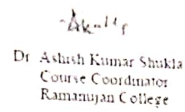 Dr Ashish Kumar Shukla
Course Coordinator
Ramanujan College